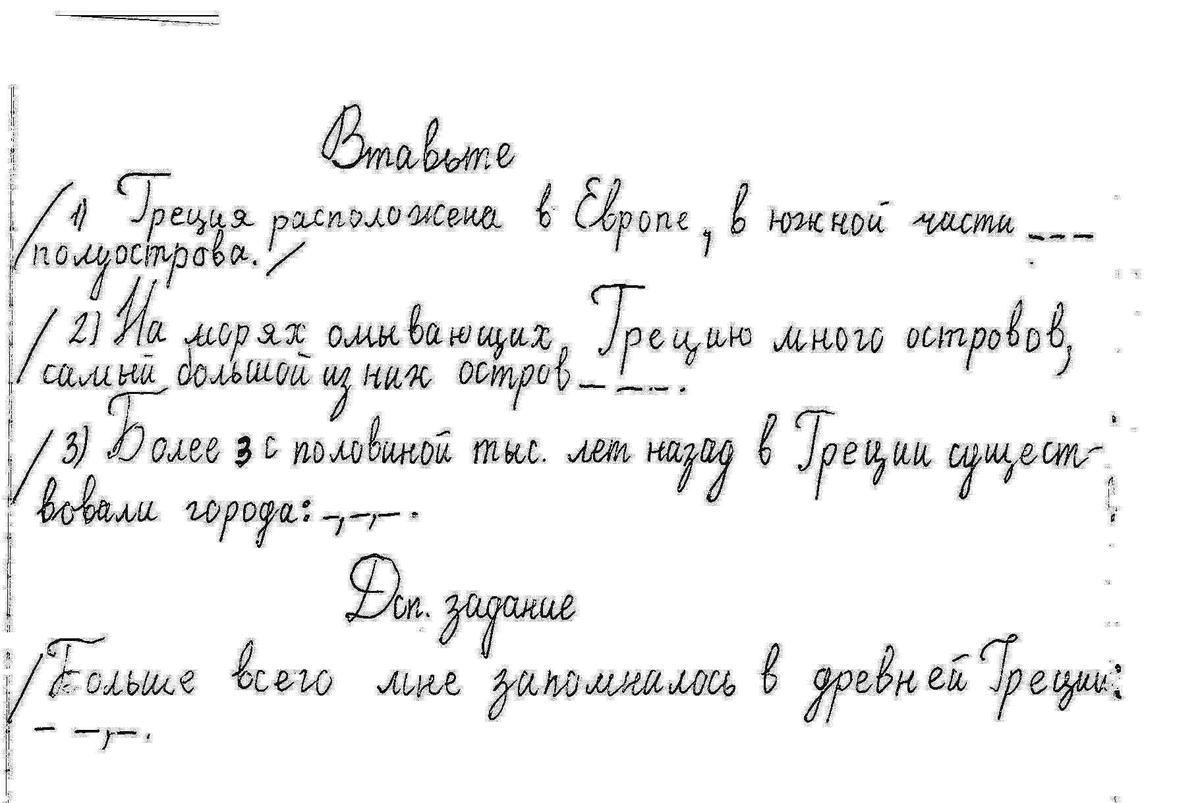 Втавьте
/ 1) Греция расположена в Европе, в южной части ---
полуострова. /
/ 2) На морях омывающих Грецию много островов,
самый большой из них остров ----.
/ 3) Более 3 с половиной тыс. лет назад в Греции сущест-
вовали города: -,-,-.
Доп. задание
/ Больше всего мне запомналось в древней Греции:
- -,-.